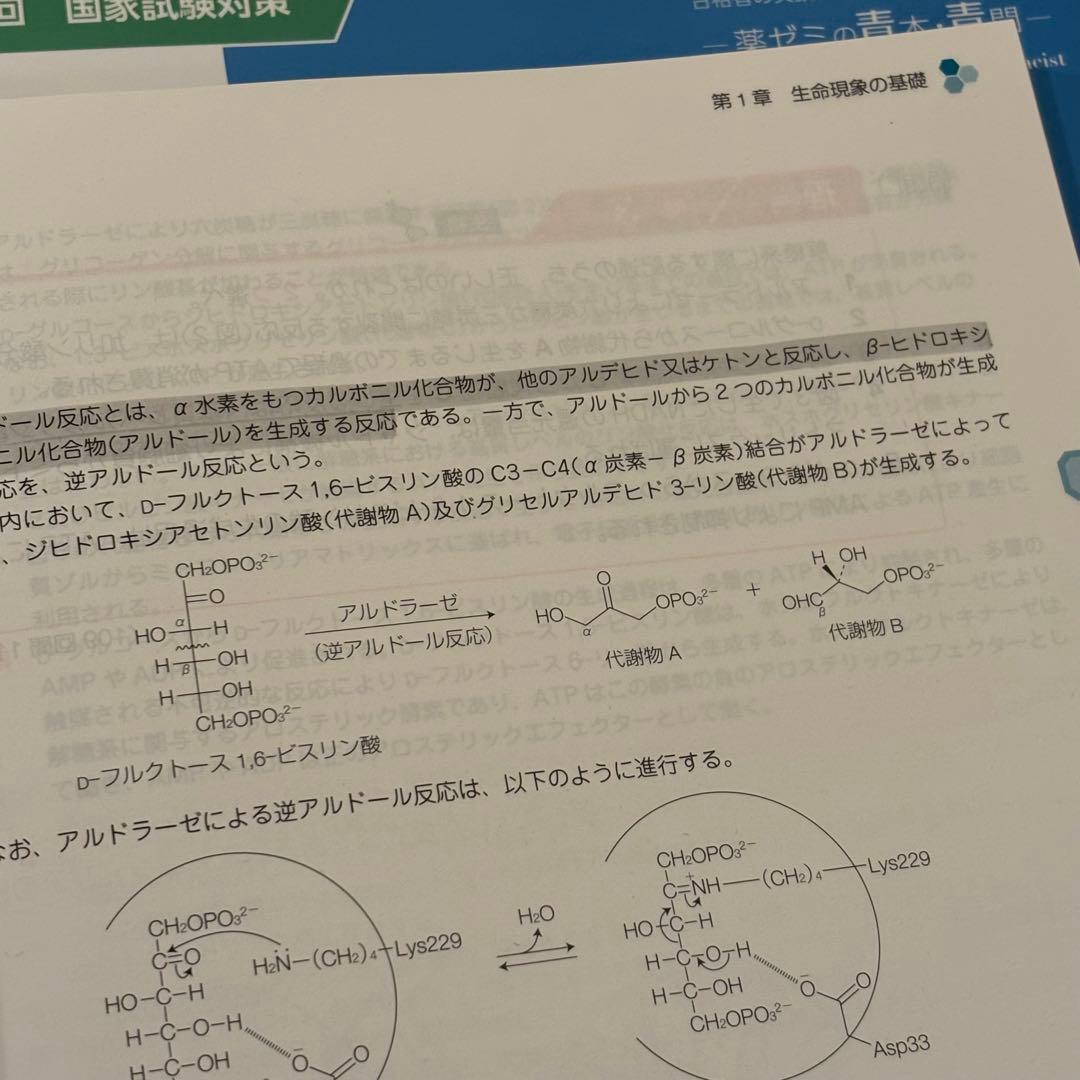 国家試験対策
―薬ゼミの青本・青問―
第1章 生命現象の基礎
ドール反応とは、α水素をもつカルボニル化合物が、他のアルデヒド又はケトンと反応し、β-ヒドロキシ
ニル化合物(アルドール)を生成する反応である。一方で、アルドールから2つのカルボニル化合物が生成
応を、逆アルドール反応という。
内において、D-フルクトース1,6-ビスリン酸のC3-C4(α炭素-β炭素)結合がアルドラーゼによって
、ジヒドロキシアセトンリン酸(代謝物A)及びグリセルアルデヒド3-リン酸(代謝物B)が生成する。
CH₂OPO₃²⁻
=O
α
HO H
H β OH
H OH
CH₂OPO₃²⁻
D-フルクトース1,6-ビスリン酸
アルドラーゼ
(逆アルドール反応)
O
HO α OPO₃²⁻
代謝物A
+
H OH
OHC β OPO₃²⁻
代謝物B
なお、アルドラーゼによる逆アルドール反応は、以下のように進行する。
CH₂OPO₃²⁻
C=O
H₂N̈-(CH₂)₄-Lys229
HO-C-H
H-C-O-H
H-C-OH
⁻O O
H₂O
CH₂OPO₃²⁻
C=N⁺H-(CH₂)₄-Lys229
HO-C-H
H-C-O-H
H-C-OH
⁻O O
CH₂OPO₃²⁻
Asp33